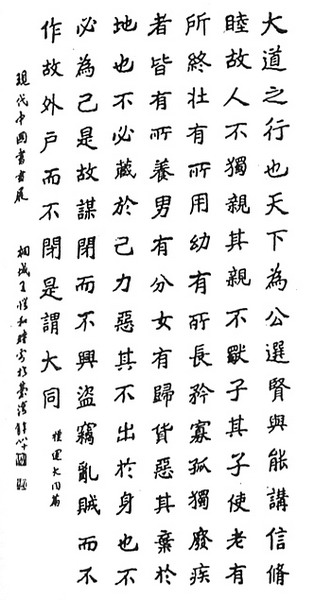 大道之行也天下為公選賢與能講信脩
睦故人不獨親其親不獨子其子使老有
所終壯有所用幼有所長矜寡孤獨廢疾
者皆有所養男有分女有歸貨惡其棄於
地也不必藏於己力惡其不出於身也不
必為己是故謀閉而不興盜竊亂賊而不
作故外戶而不閉是謂大同
禮運大同篇
現代中國書畫展
桐城